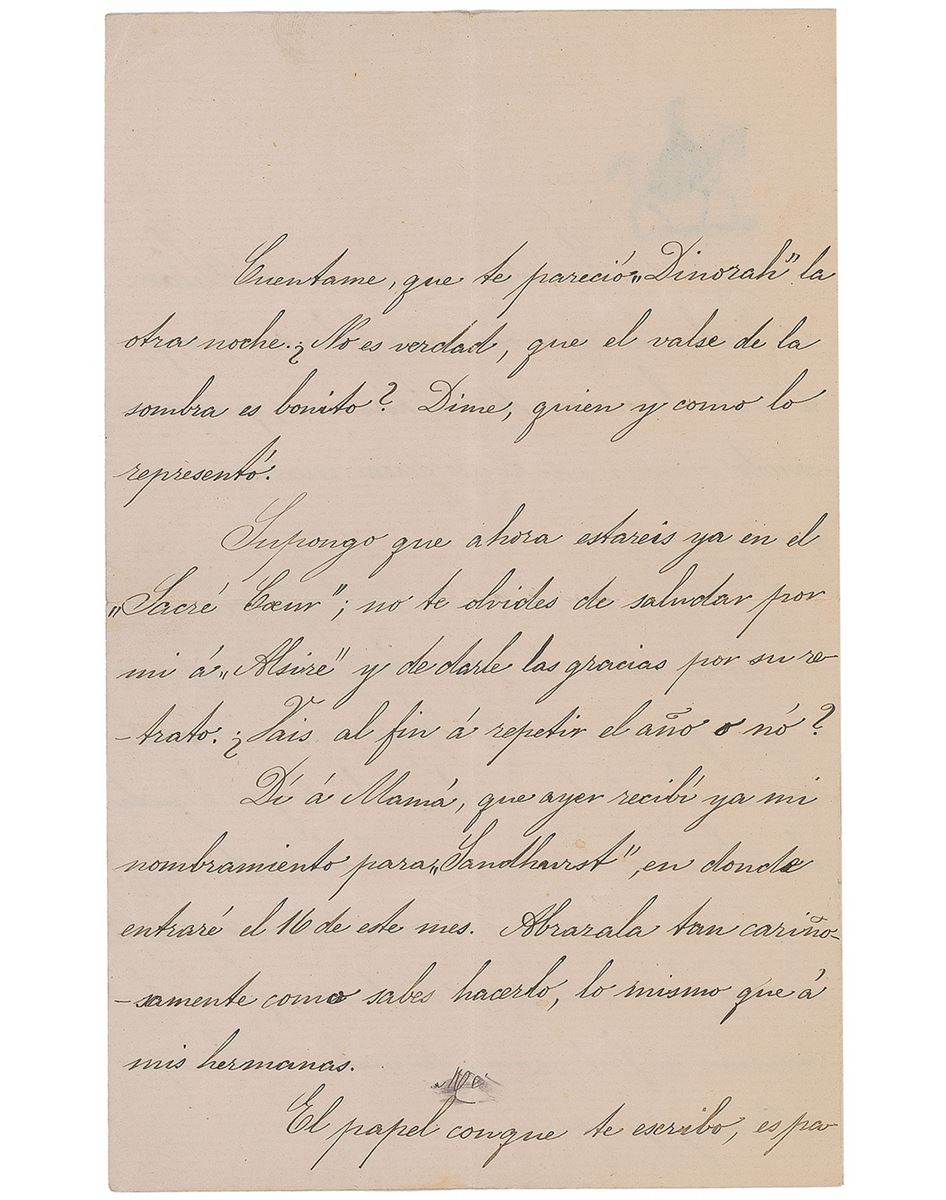 Cuentame, que te pareció „Dinorah" la
otra noche. ¿No es verdad, que el valse de la
sombra es bonito? Dime, quien y como lo
representó.
Supongo que ahora estareis ya en el
„Sacré Cœur"; no te olvides de saludar por
mi á „Alsire" y de darle las gracias por su re-
-trato. ¿Vais al fin á repetir el año o nó?
Dí á Mamá, que ayer recibí ya mi
nombramiento para „Sandhurst", en donde
entraré el 16 de este mes. Abrazala tan cariño-
-samente como sabes hacerlo, lo mismo que á
mis hermanas.
El papel conque te escribo, es pa-